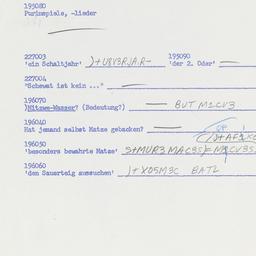 195080
Purimspiele, -lieder
227003 195090
'ein Schaltjahr' )+U8V3RJA.R- 'der 2. Oder'
227004
"Schewat ist kein ..."
196070
Mitzwe-Wasser? (Bedeutung?) — BUT M1CV3
196040
Hat jemand selbst Matze gebacken? —
196050
'besonders bewahrte Matze'
196060
'den Sauerteig aussuchen' )+XO5M3C BATL